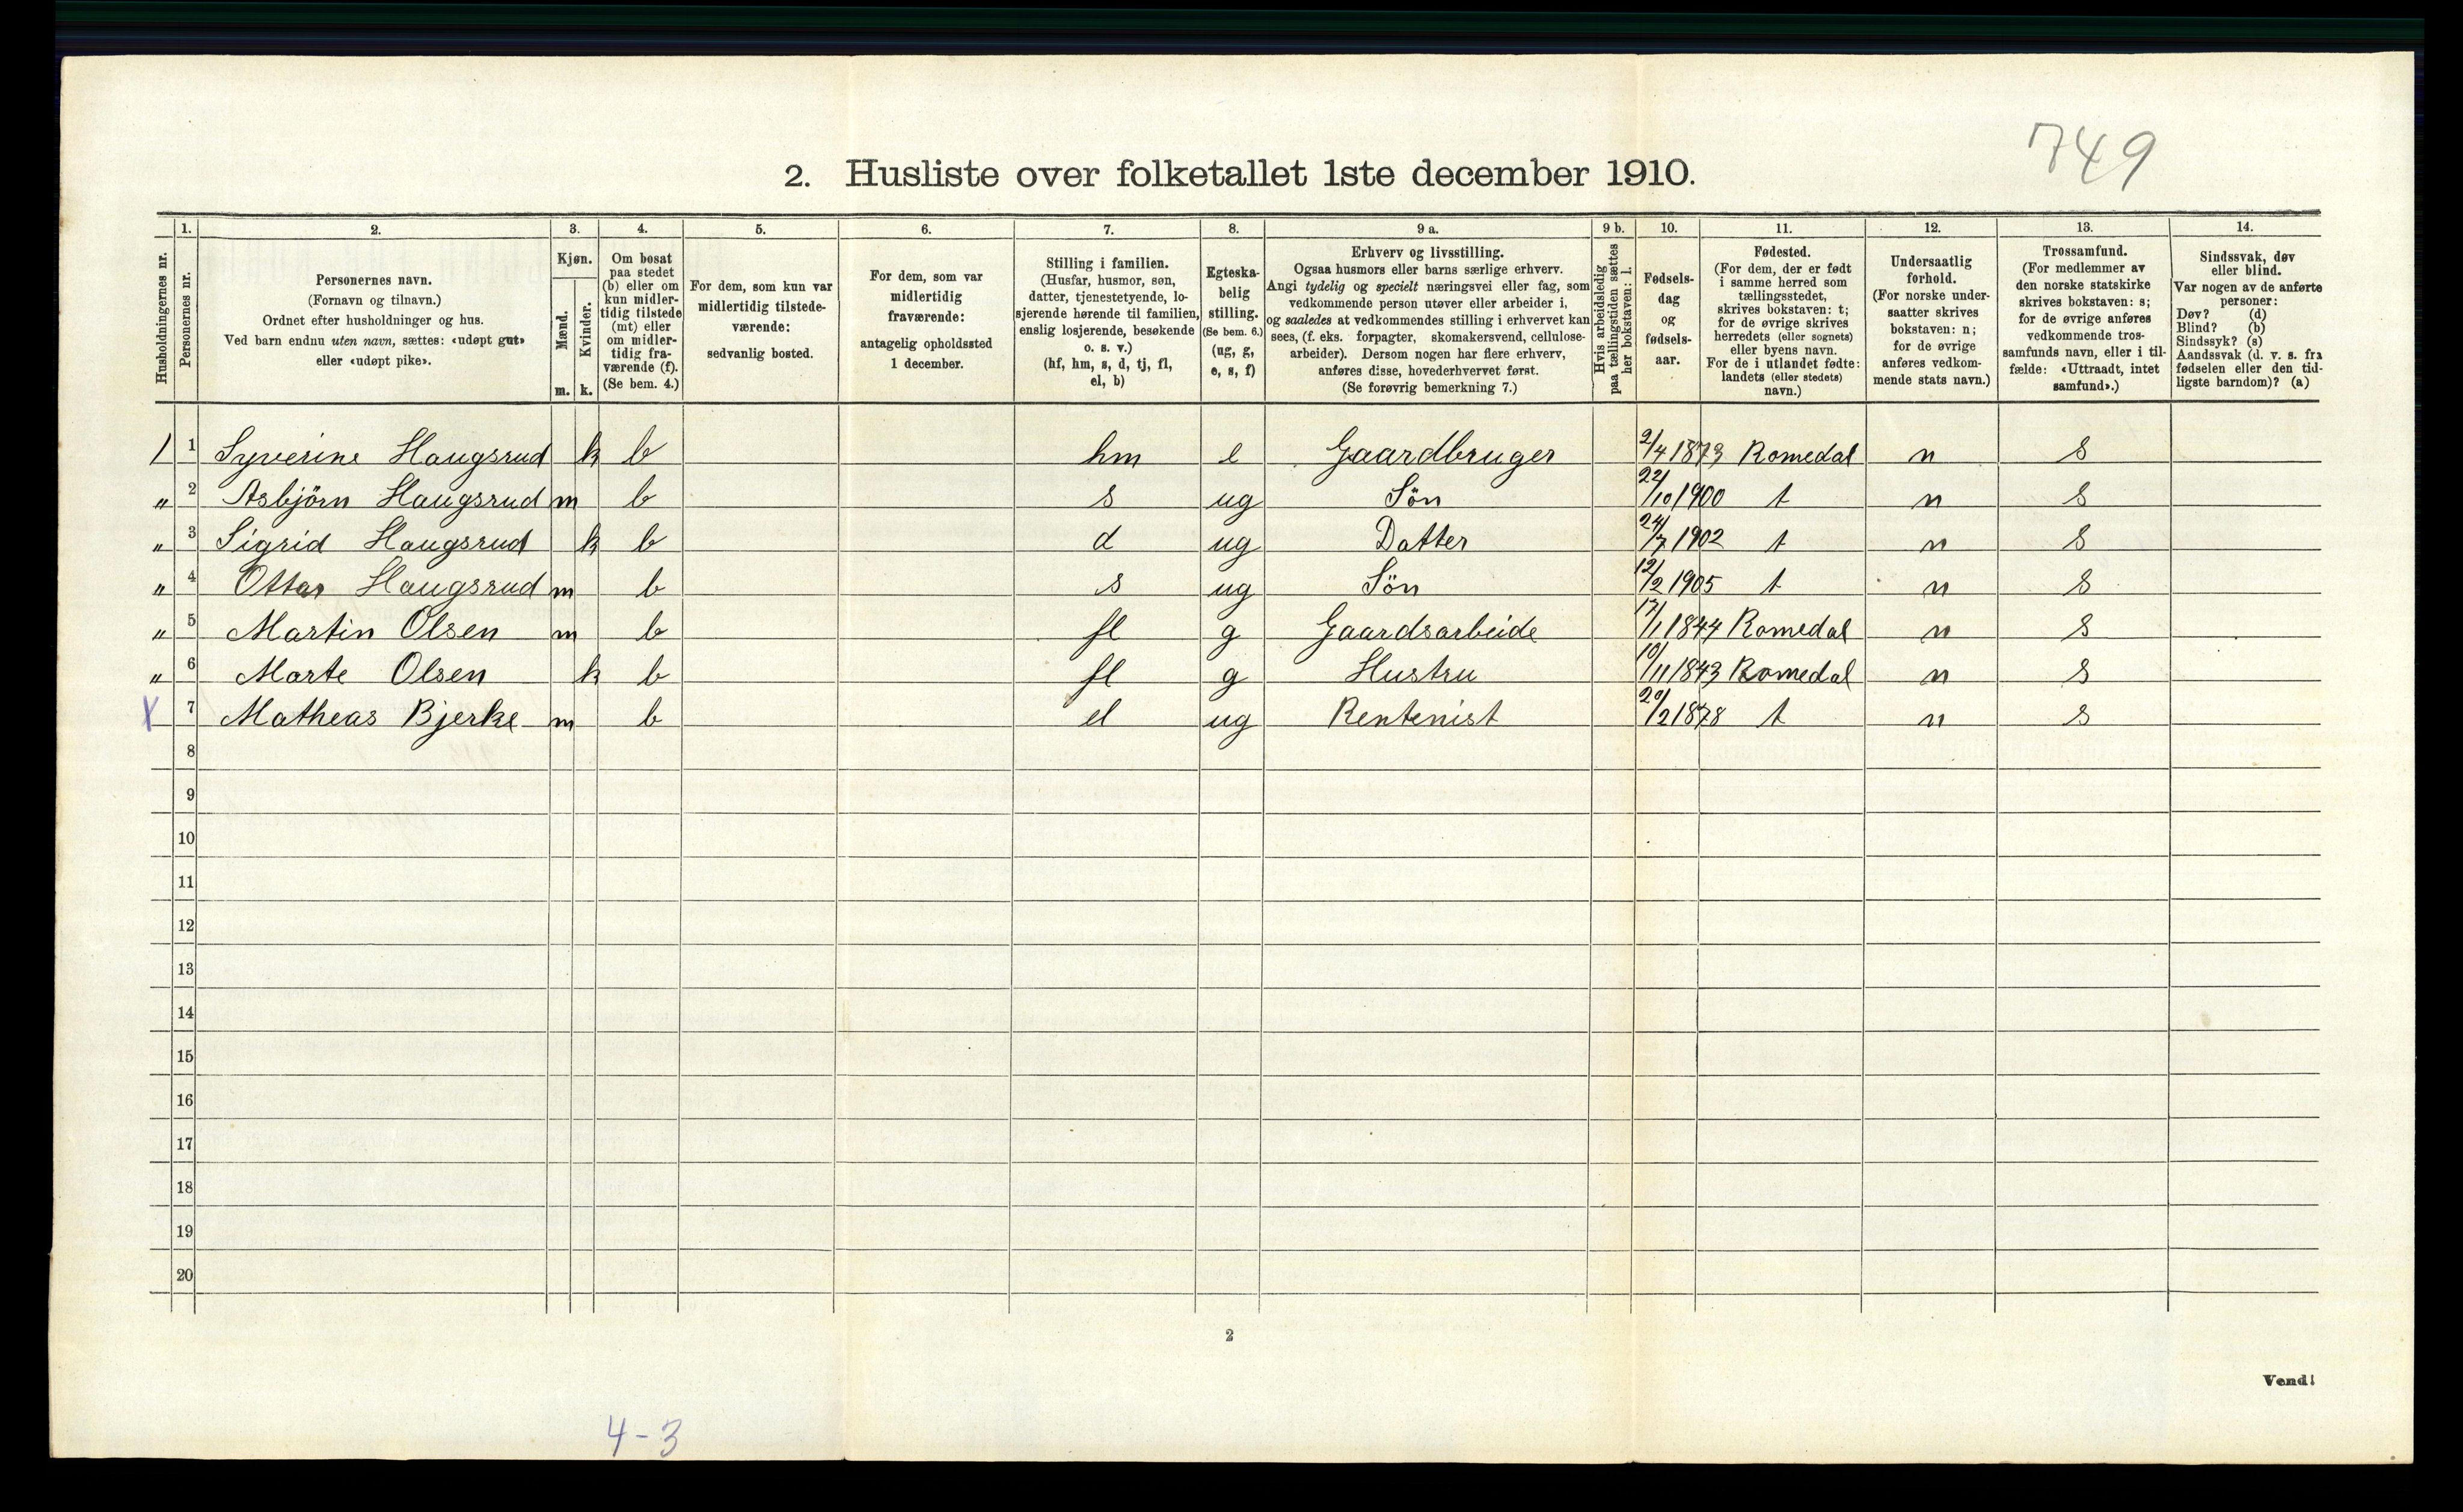 749
2. Husliste over folketallet 1ste december 1910.
1. 2. 3. 4. 5. 6. 7. 8. 9 a. 9 b. 10. 11. 12. 13. 14.
Husholdningernes nr.
Personernes nr.
Personernes navn.
(Fornavn og tilnavn.)
Ordnet efter husholdninger og hus.
Ved barn endnu uten navn, sættes: «udøpt gut»
eller «udøpt pike».
Kjøn.
Mænd.
Kvinder.
m. k.
Om bosat
paa stedet
(b) eller om
kun midler-
tidig tilstede
(mt) eller
om midler-
tidig fra-
værende (f).
(Se bem. 4.)
For dem, som kun var
midlertidig tilstede-
værende:
sedvanlig bosted.
For dem, som var
midlertidig
fraværende:
antagelig opholdssted
1 december.
Stilling i familien.
(Husfar, husmor, søn,
datter, tjenestetyende, lo-
sjerende hørende til familien,
enslig losjerende, besøkende
o. s. v.)
(hf, hm, s, d, tj, fl,
el, b)
Egteska-
belig
stilling.
(Se bem. 6.)
(ug, g,
e, s, f)
Erhverv og livsstilling.
Ogsaa husmors eller barns særlige erhverv.
Angi tydelig og specielt næringsvei eller fag, som
vedkommende person utøver eller arbeider i,
og saaledes at vedkommendes stilling i erhvervet kan
sees, (f. eks. forpagter, skomakersvend, cellulose-
arbeider). Dersom nogen har flere erhverv,
anføres disse, hovederhvervet først.
(Se forøvrig bemerkning 7.)
Hvis arbeidsledig
paa tællingstiden sættes
her bokstaven: l.
Fødsels-
dag
og
fødsels-
aar.
Fødested.
(For dem, der er født
i samme herred som
tællingsstedet,
skrives bokstaven: t;
for de øvrige skrives
herredets (eller sognets)
eller byens navn.
For de i utlandet fødte:
landets (eller stedets)
navn.)
Undersaatlig
forhold.
(For norske under-
saatter skrives
bokstaven: n;
for de øvrige
anføres vedkom-
mende stats navn.)
Trossamfund.
(For medlemmer av
den norske statskirke
skrives bokstaven: s;
for de øvrige anføres
vedkommende tros-
samfunds navn, eller i til-
fælde: «Uttraadt, intet
samfund».)
Sindssvak, døv
eller blind.
Var nogen av de anførte
personer:
Døv? (d)
Blind? (b)
Sindssyk? (s)
Aandssvak (d. v. s. fra
fødselen eller den tid-
ligste barndom)? (a)
1 1 Syverine Haugsrud k b hm e Gaardbruger 2/4 1873 Romedal n s
" 2 Asbjörn Haugsrud m b s ug Sön 22/10 1900 t n s
" 3 Sigrid Haugsrud k b d ug Datter 24/7 1902 t n s
" 4 Ottar Haugsrud m b s ug Sön 12/2 1905 t n s
" 5 Martin Olsen m b fl g Gaardsarbeide 17/1 1844 Romedal n s
" 6 Marte Olsen k b fl g Hustru 10/11 1843 Romedal n s
X 7 Matheas Bjerke m b el ug Rentenist 20/2 1878 t n s
8
9
10
11
12
13
14
15
16
17
18
19
20
2
Vend!
4-3